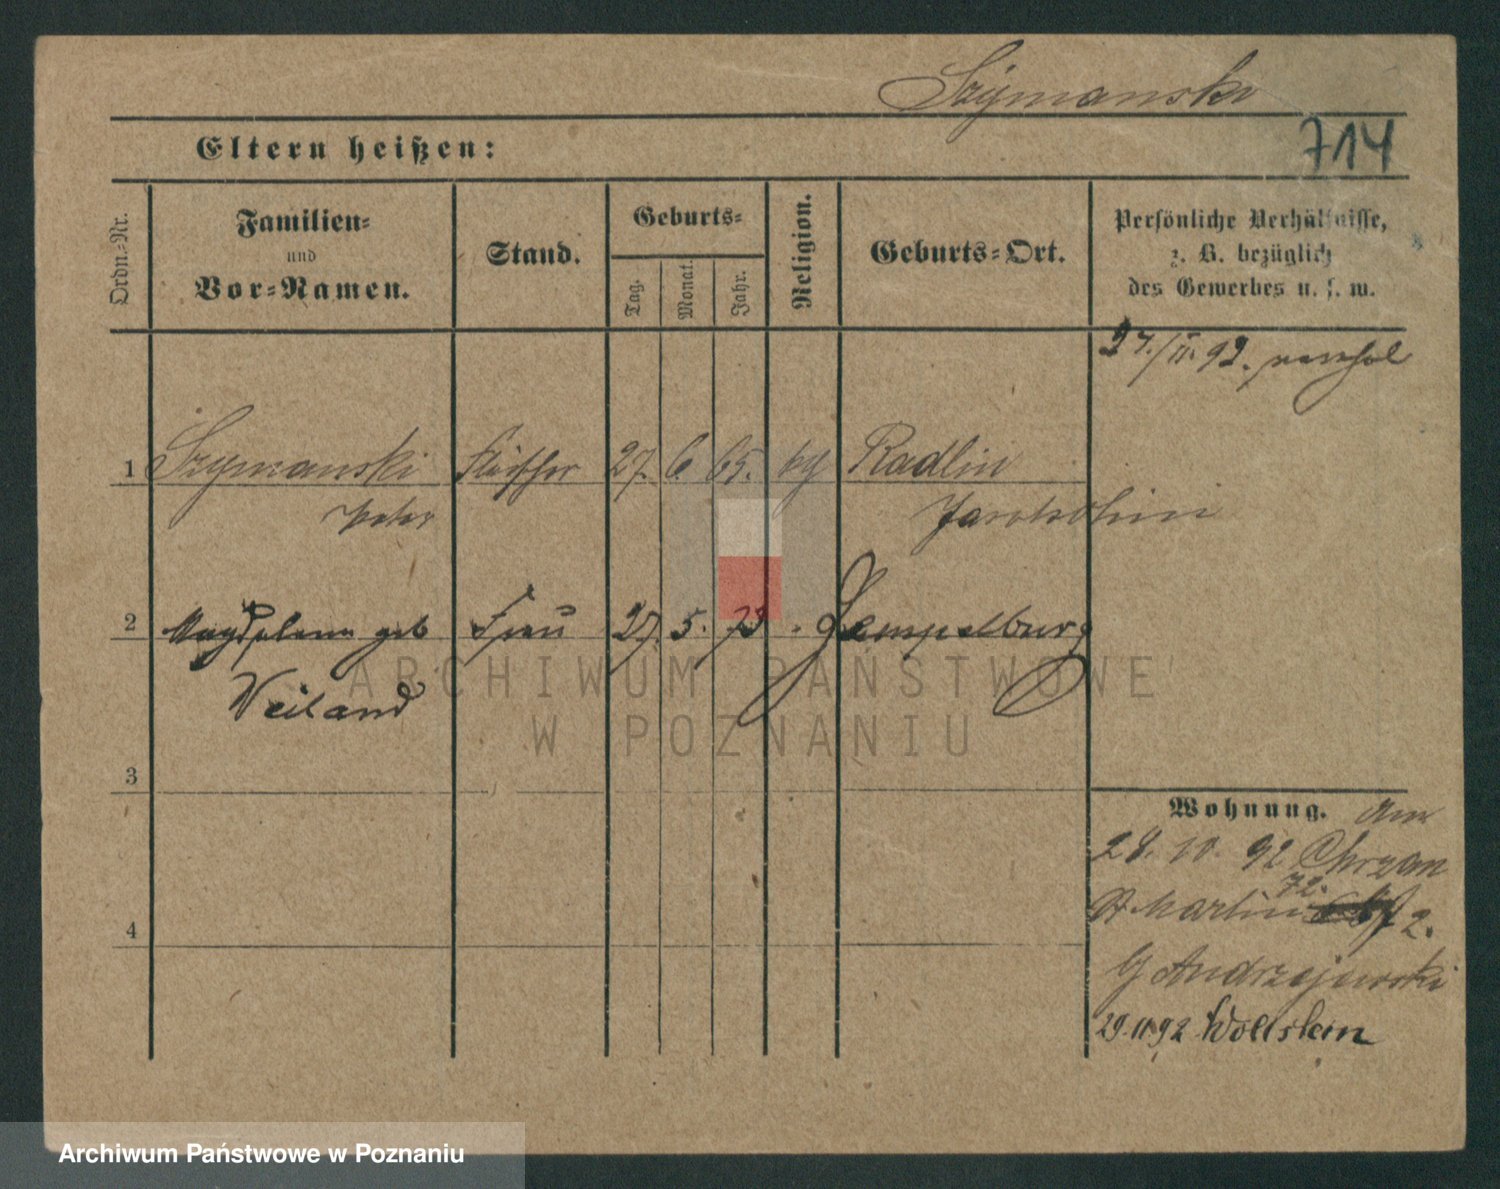 Szymanski
714
Eltern heißen:
Ordn.-Nr.
Familien-
und
Vor-Namen.
Stand.
Geburts-
Tag.
Monat.
Jahr.
Religion.
Geburts-Ort.
Persönliche Verhältnisse,
z. B. bezüglich
des Gewerbes u. s. w.
27./II. 92.
1 Szymanski Fleischer 27. 6. 65. kath Radlin
Peter Jarotschin
2 Magdalena geb Frau 27. 5. 73 Zempelburg
Weiland
3
4
Wohnung.
28. 10. 92 Chrzan
St Martin 72. 2.
G Andrzejewski
29.11.92 Wollstein
ARCHIWUM PAŃSTWOWE
W POZNANIU
Archiwum Państwowe w Poznaniu